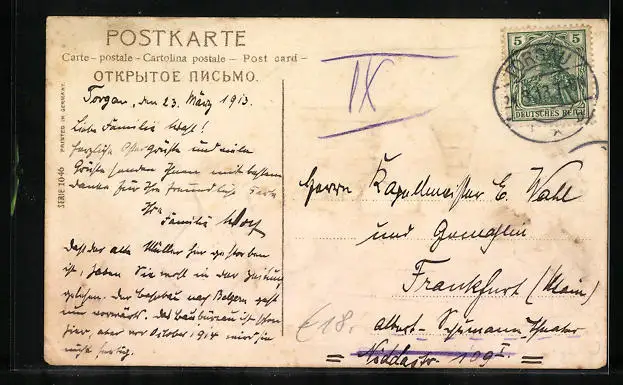 POSTKARTE
Carte - postale - Cartolina postale - Post card -
ОТКРЫТОЕ ПИСЬМО.
PRINTED IN GERMANY.
SERIE 1046
Torgau, den 23. März 1913.
Liebe Familie Wahl!
Herzliche Ostergrüße und viele
Grüße senden Ihnen mit bestem
Danke für Ihre freundliche Karte
Ihre
Familie
Daß der alte Müller hier gestorben
ist, haben Sie wohl in der Zeitung
gelesen. Der Bahnbau nach Belgern geht
nun vorwärts. Das Baubüreau ist schon
hier, aber vor October 1914 wird sie
nicht fertig.
IX
5 5
DEUTSCHES REICH
TORGAU
Herrn Kapellmeister E. Wahl
und Gemahlin
Frankfurt (Main)
Albert-Schumann-Theater
= Niddastr. 109 I =
€18.